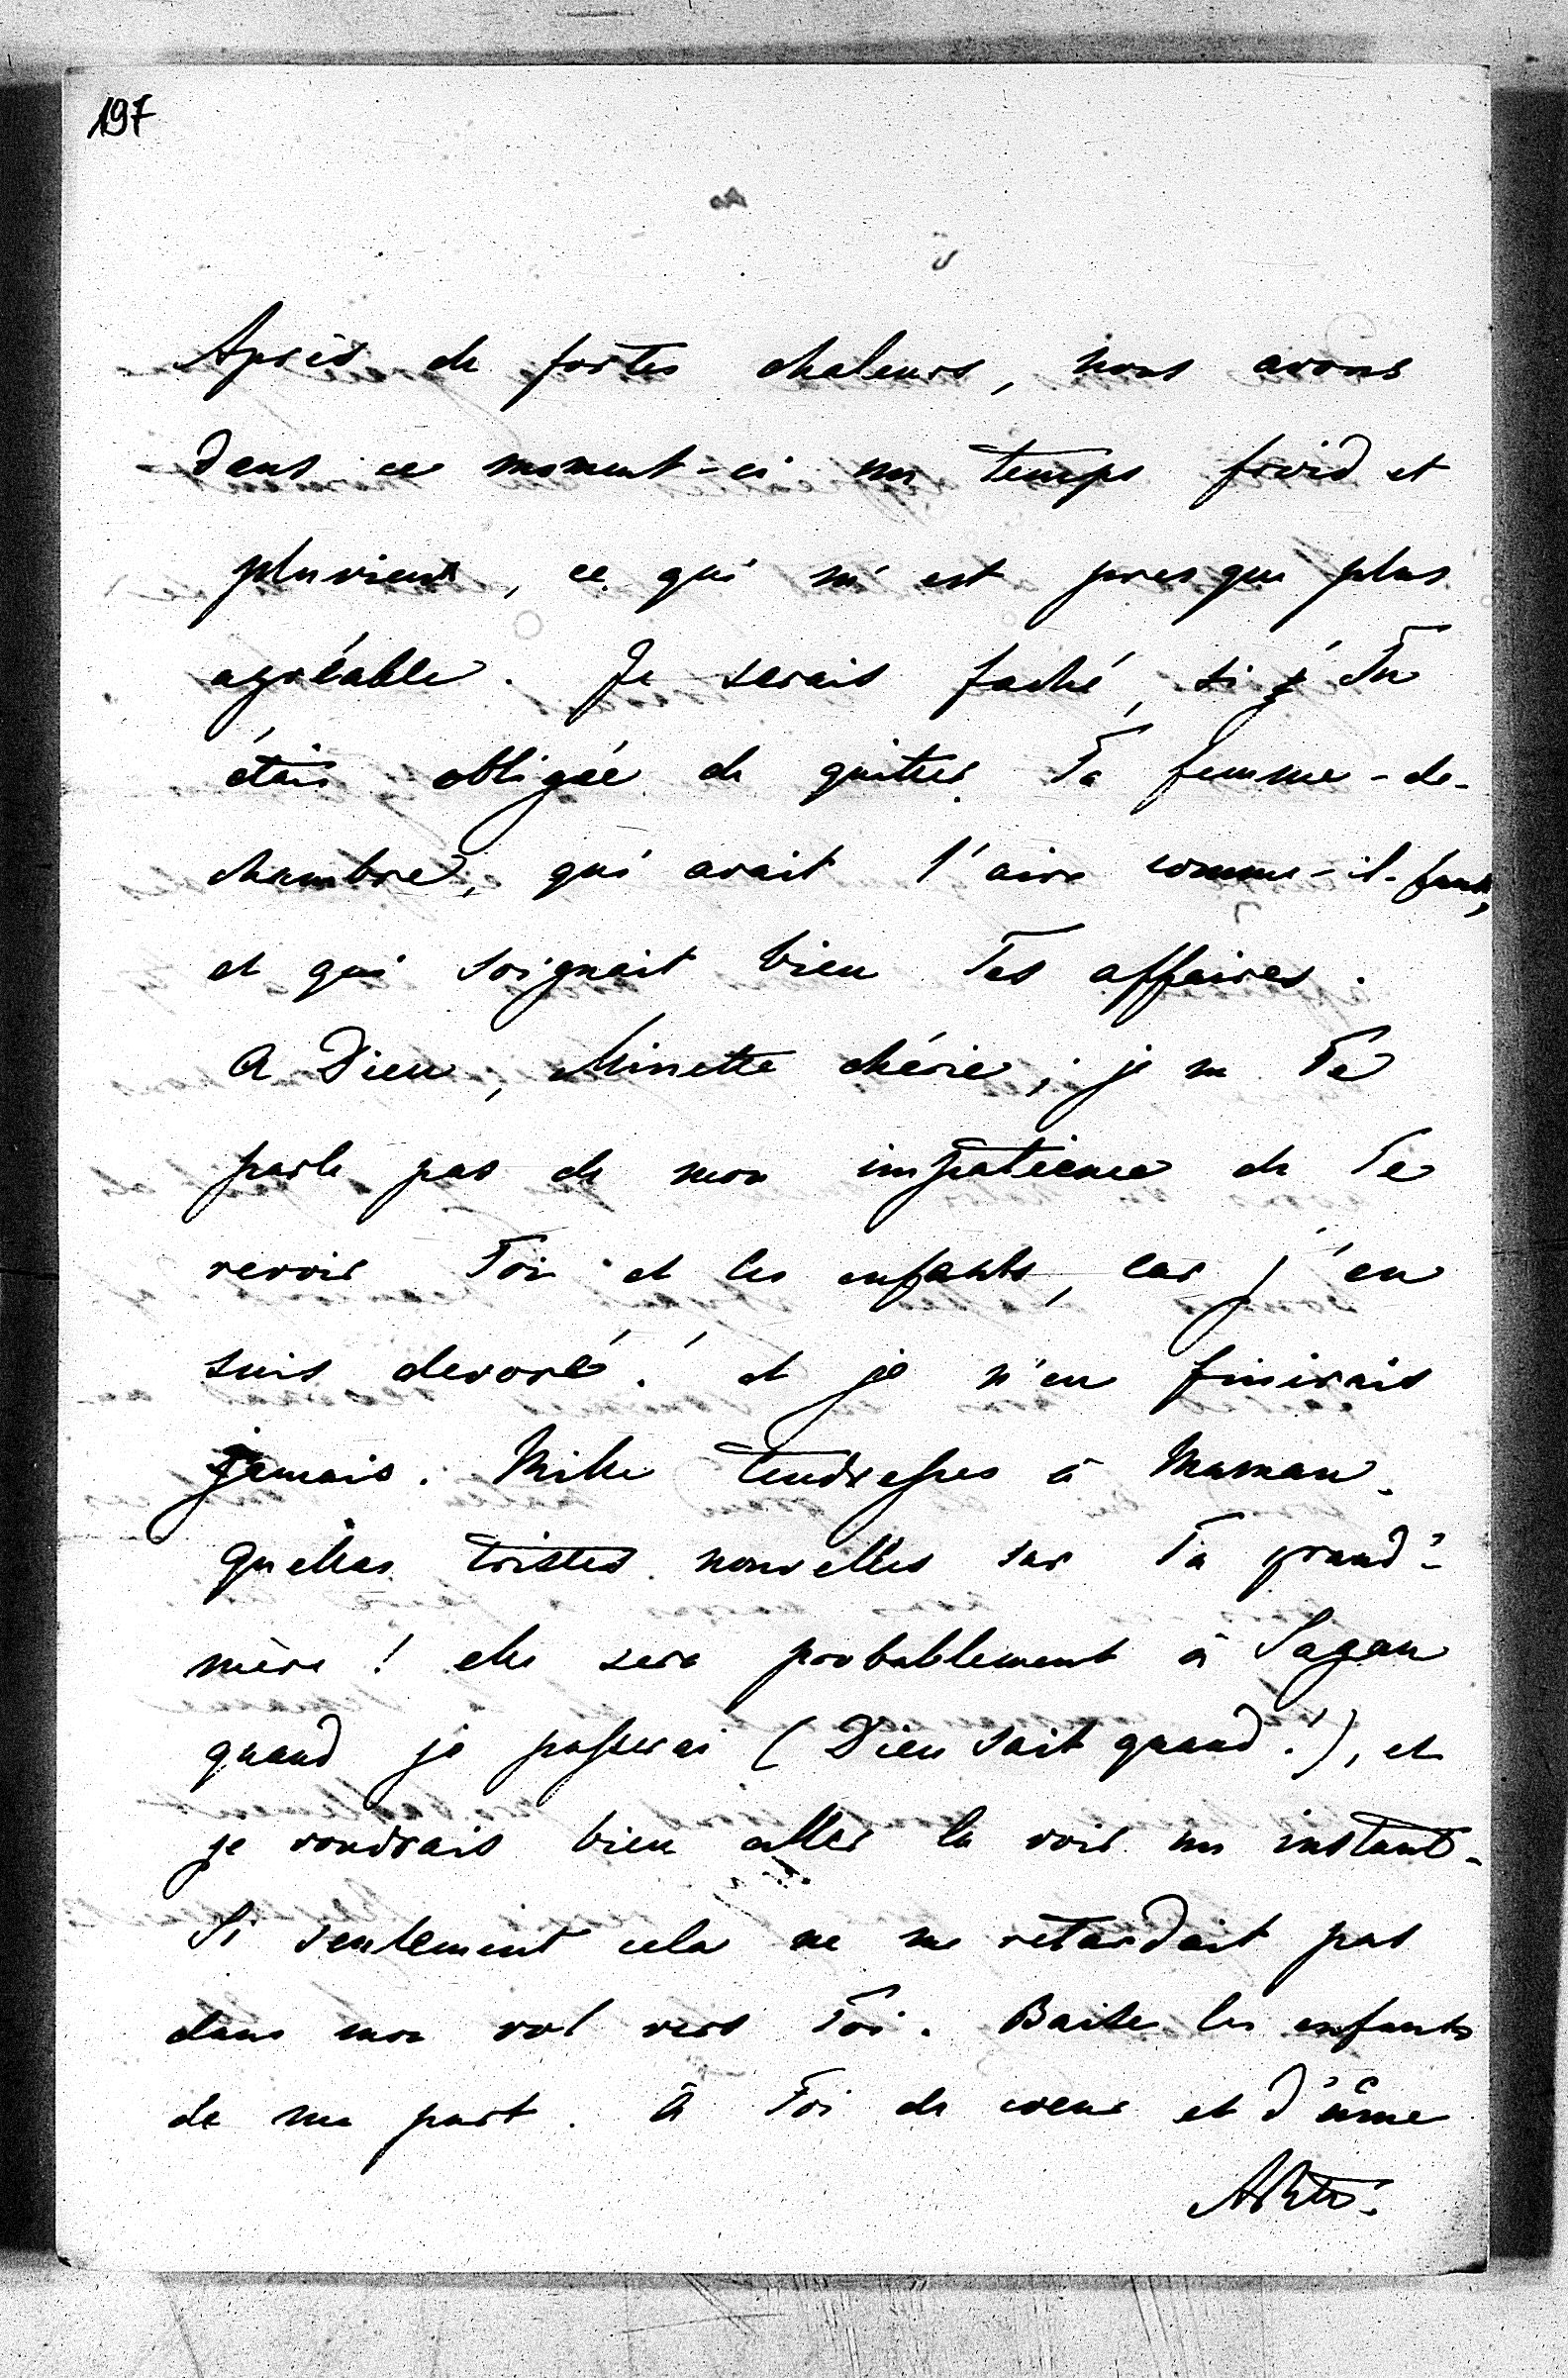 197
Après de fortes chaleurs, nous avons
dans ce moment-ci un temps froid et
pluvieux, ce qui m'est presque plus
agréable. Je serais faché, si Tu
étais obligée de quitter Ta femme-de-
chambre, qui avait l'air comme-il-faut,
et qui soignait bien Tes affaires.
A Dieu, Minette chérie; je ne Te
parle pas de mon impatience de Te
revoir Toi et les enfants, car j'en
suis devoré! et je n'en finirais
jamais. Mille tendresses à Maman.
Quelles tristes nouvelles sur Ta grand'-
mère! elle sera probablement à Sagan
quand je passerai (Dieu sait quand!), et
je voudrais bien aller la voir un instant.
Si seulement cela ne me retardait pas
dans mon vol vers Toi. Baise les enfants
de ma part. à Toi de coeur et d'âme